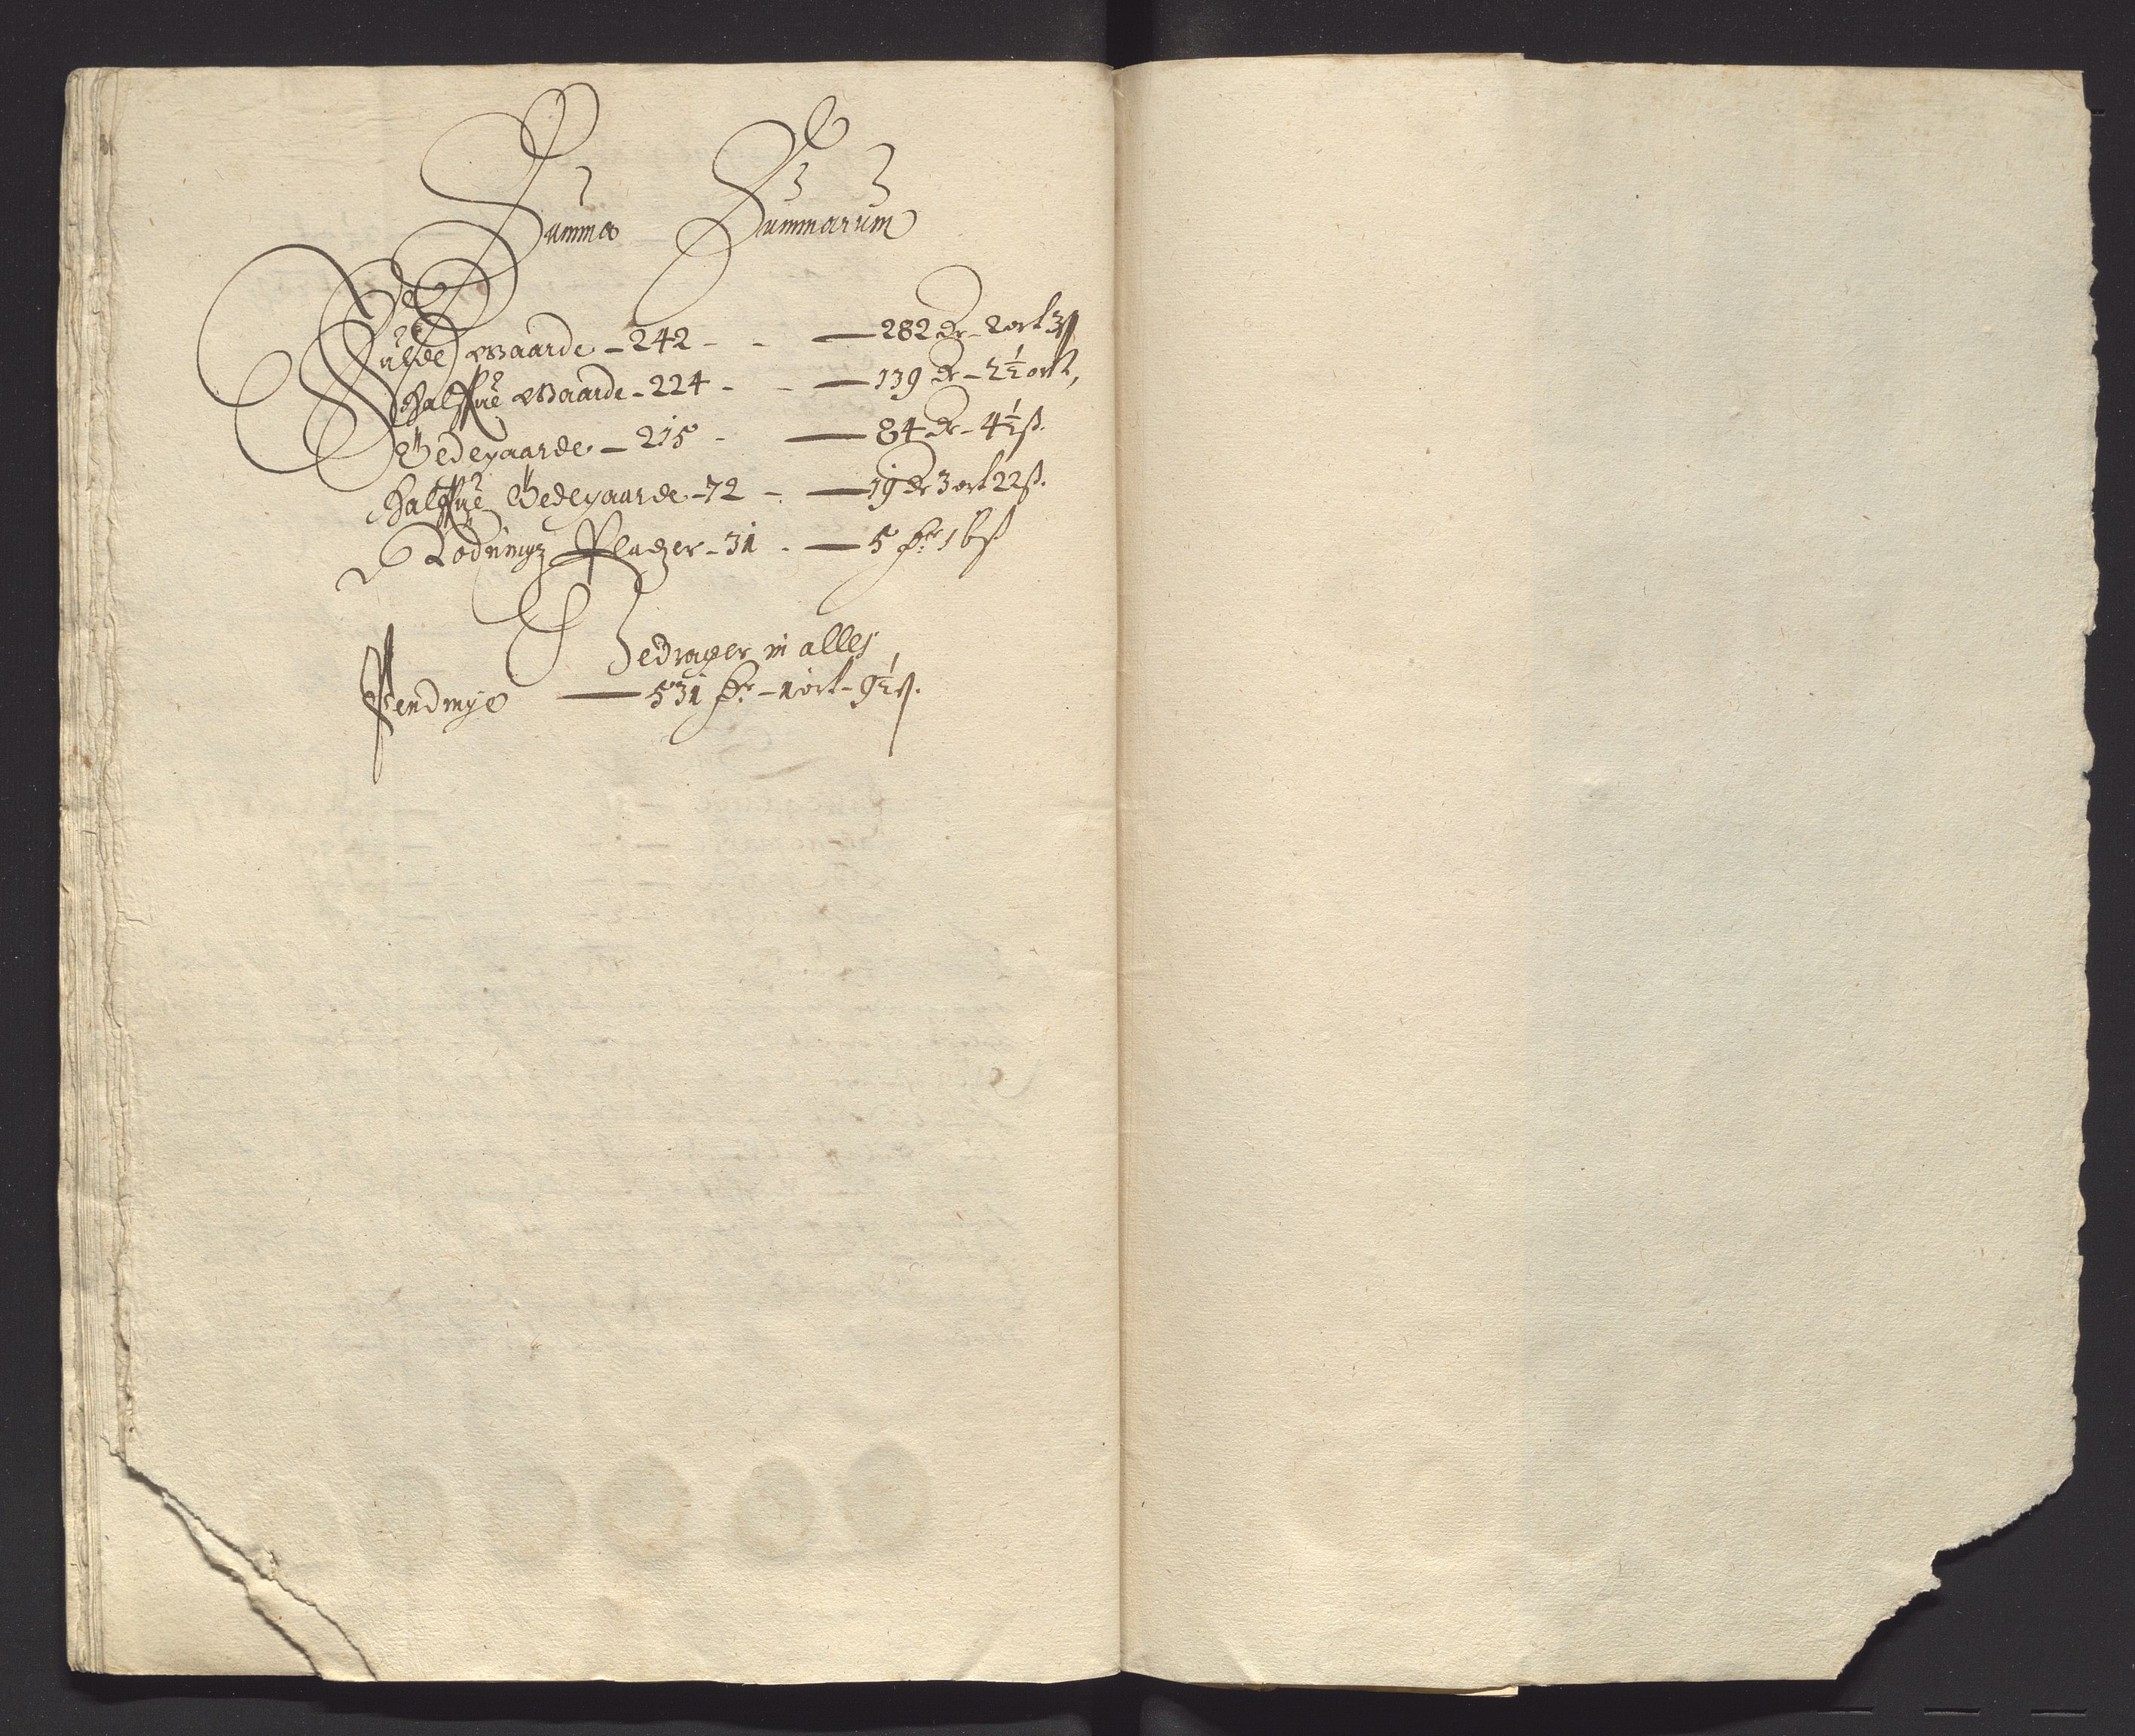 Summa Summarum
Fulde Gaarde - 242 - - — 282 dr - 2 ort 3 ß
Halffue Gaarde - 224 - - — 139 dr - 2½ ort,
Ödegaarde - 215 - — 84 dr - 4½ ß.
Halffue Ödegaarde - 72 - — 19 dr 3 ort 22 ß.
Rödnings Pladzer - 31 - — 5 dr 16 ß
Bedrager in alles
Pendinge — 531 dr - 1 ort - 9½ ß.